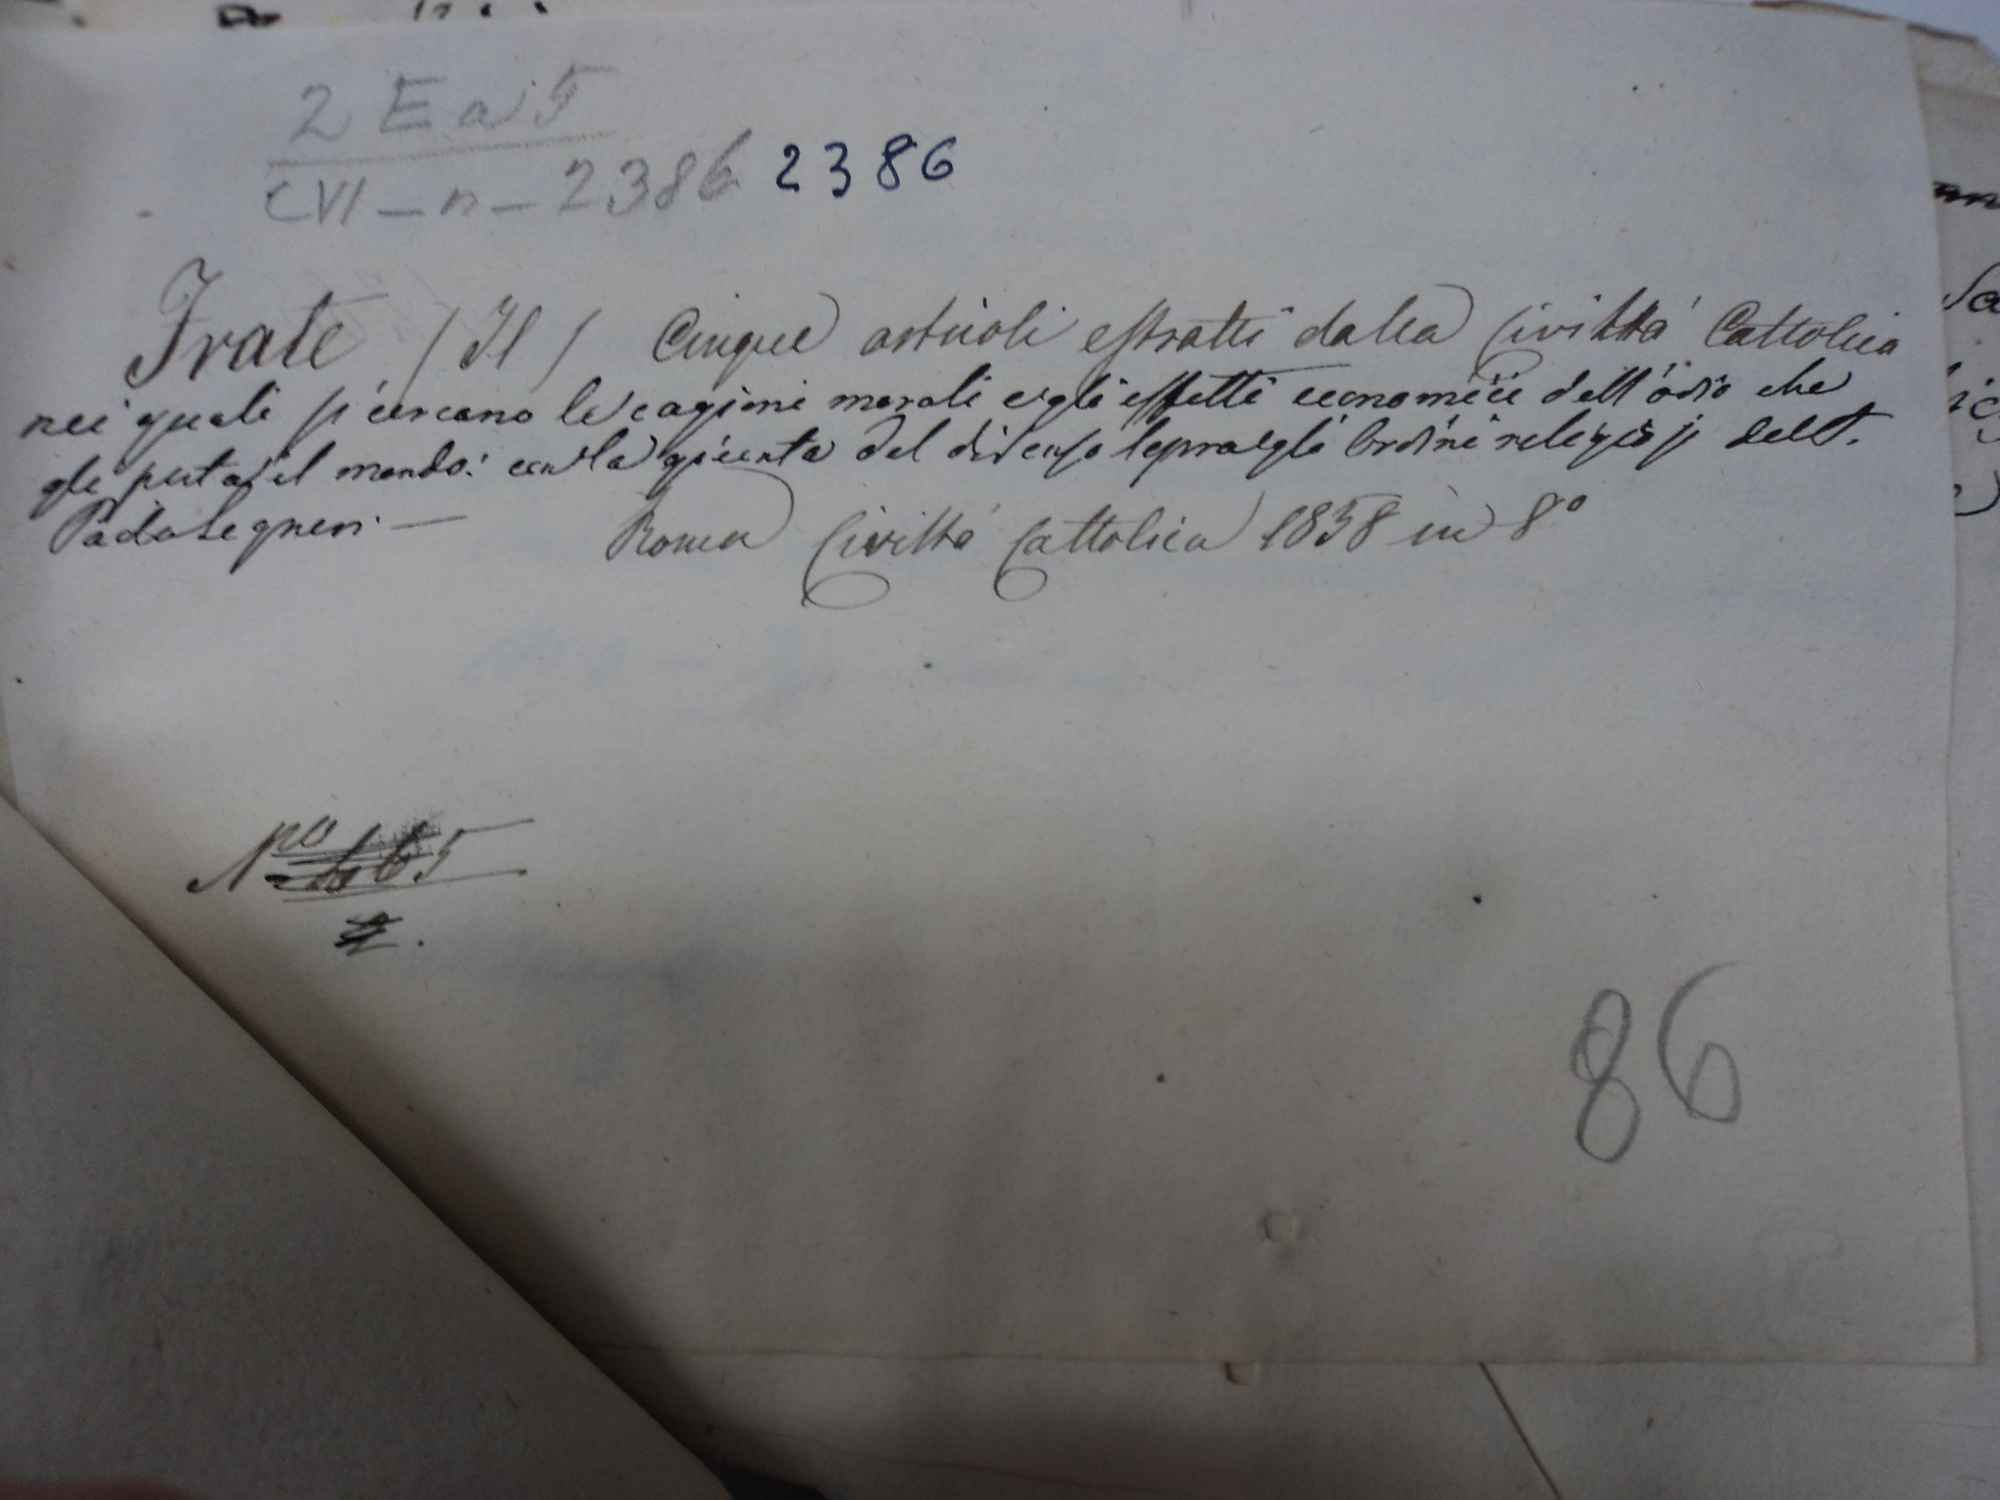 2 E a T
CVI - n - 2386 2386
Frate (Il) Cinque articoli estratti dalla Civiltá Cattolica
nei quali si cercano le cagioni morali e gli effetti economici dell'odio che
gli porta il mondo: con la giunta del discorso sopra gli Ordini religiosi del P.
Paolo Segneri. — Roma Civiltá Cattolica 1858 in 8º
Nro 465
86